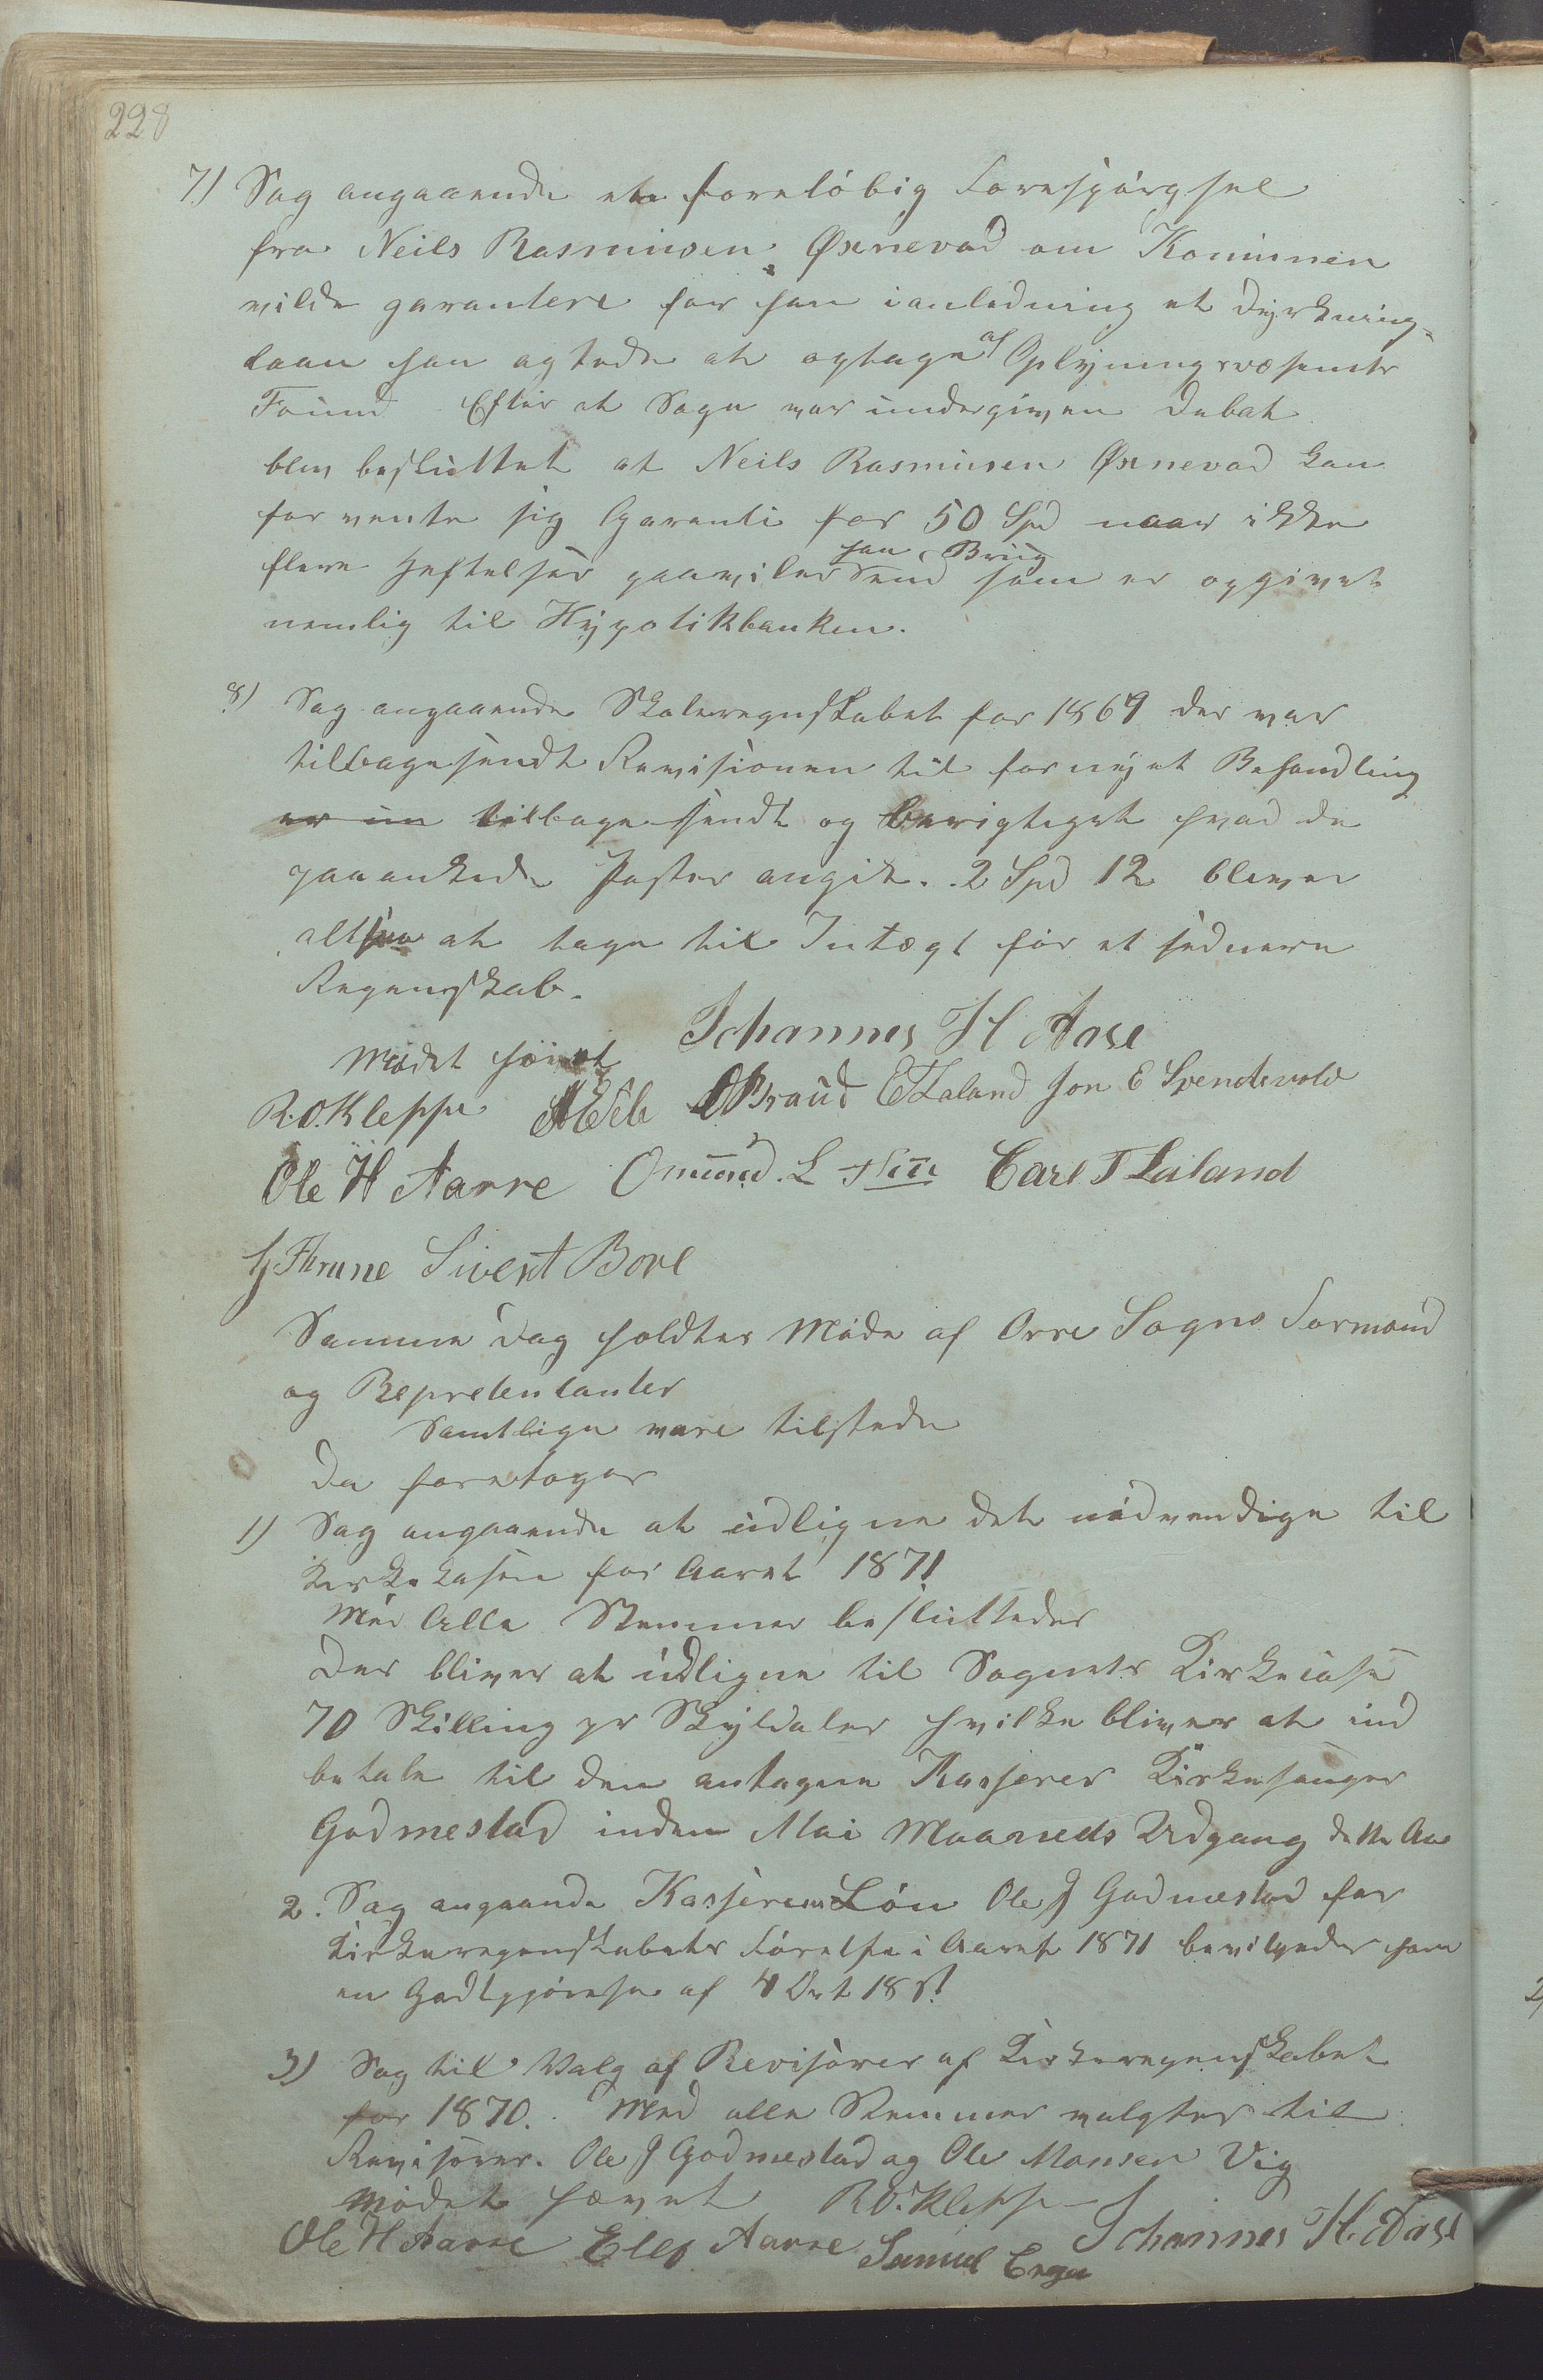 228
7) Sag angaaende en foreløbig Forespørgsel
fra Neils Rasmusen Øxnevad om Komunen
vilde garantere for ham ianledning et dyrkning-
laan han agtede at optage af Oplysningsvæsenets
Found. Efter at Sagen var undergiven Debat
blev besluttet at Neils Rasmusen Øxnevad kan
forvente sig Garanti for 50 Spd naar ikke
flere Heftelser paaviler hans Brug end som er opgivet
nemlig til Hypotikbanken.
8) Sag angaaende Skoleregnskabet for 1869 der var
tilbagesendt Revisionen til fornyet Behandling
er nu tilbagesendt og berigtiget hvad de
paaankede Poster angik. 2 Spd 12 bliver
altsaa at tage til Intægt for et sednere
Regenskab.
Mødet hævet Johannes H Aase
R.O.Kleppe OBraud ETLaland Jon E Svendsvold
Ole H Aarre Omund. L Carl T Laland
Thrane Sivert Bore
Samme Dag holdtes Møde af Orre Sogns Formænd
og Repræsentanter
Samtlige vare tilstede
Da foretoges
1) Sag angaaende at udligne det nødvendige til
Kirkekasen for Aaret 1871
Med Alle Stemmer besluttedes
Der bliver at udligne til Sognets Kirkecase
70 Skilling pr Skyldaler hvilke bliver at ind
betale til den antagne Kasserer Kirkesanger
Godmestad inden Mai Maaneds Udgang dette Aar
2. Sag angaande Kasserens Løn Ole J Godmestad for
Kirkeregenskabets Førelse i Aaret 1871 bevilgedes ham
en Godtgjørelse af 4 Ort 18 s!
3) Sag til Valg af Revisorer af Kirkeregenskabet
for 1870. Med alle Stemmer valgtes til
Revisorer. Ole J Godmestad og Ole Monsen Vig
Mødet hævet R.O.Kleppe Johannes H. Aase
Ole H Aarre Ellef Aarre Samuel Erga